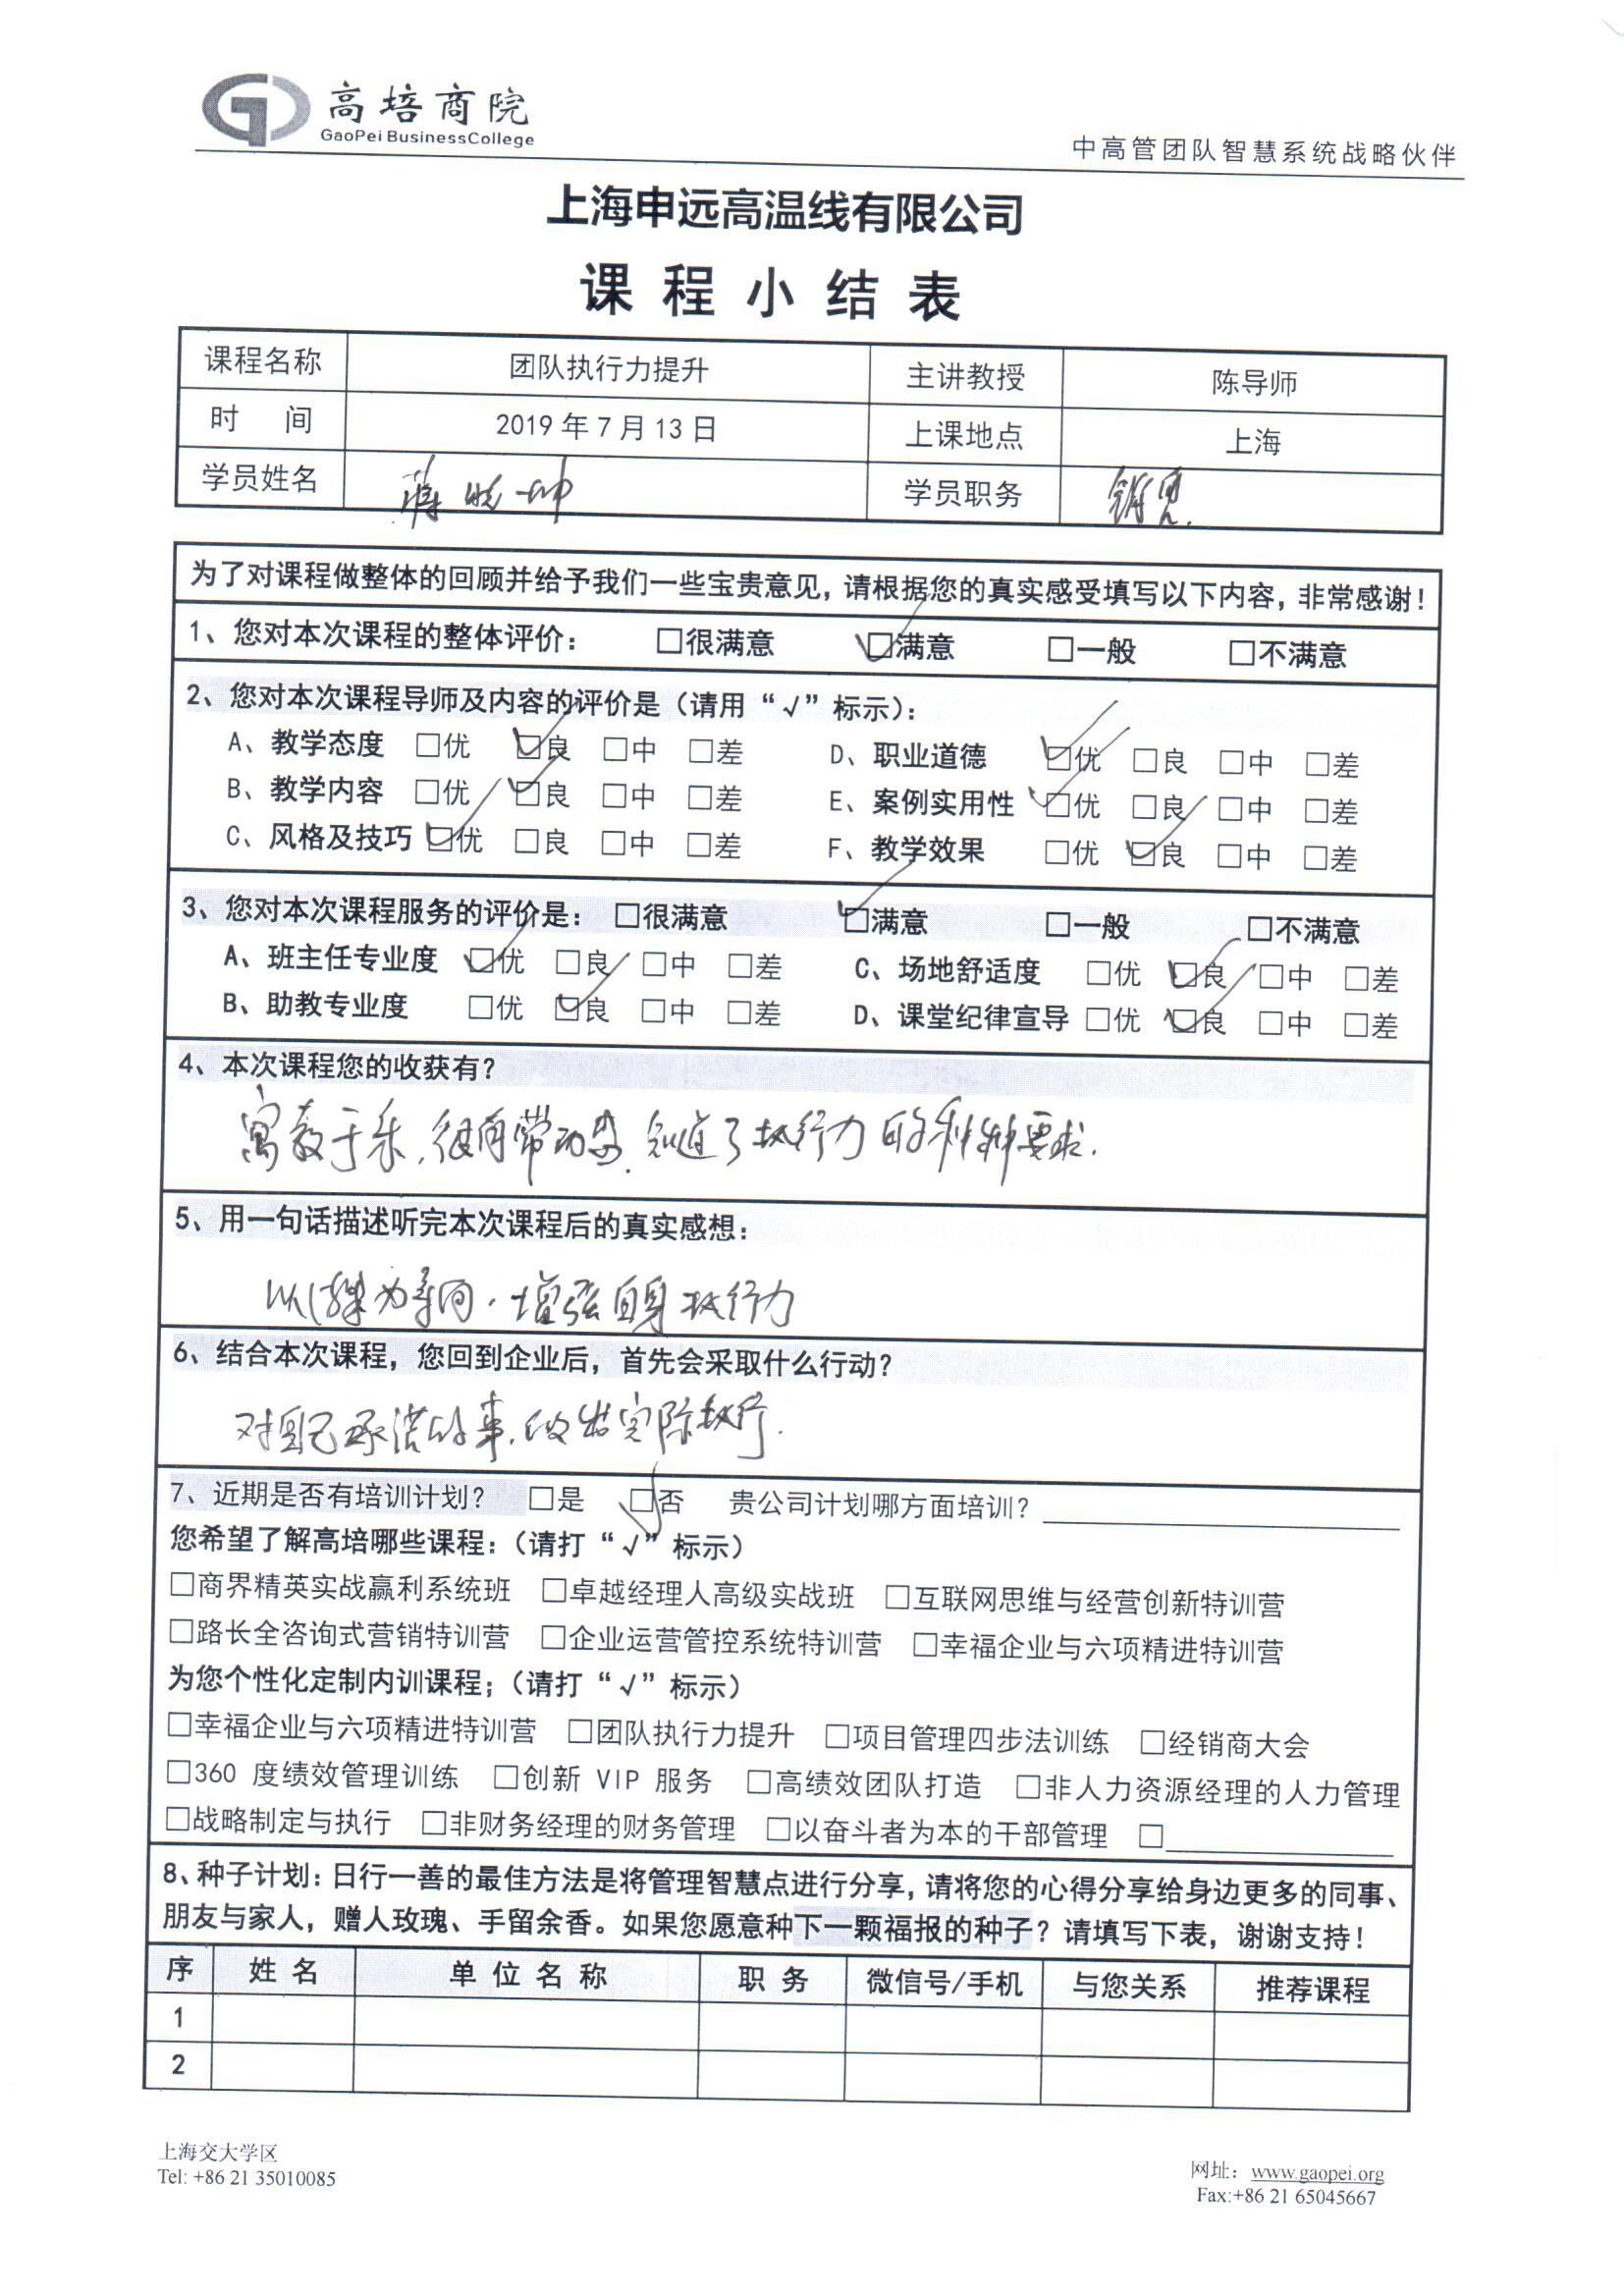 高培商院
GaoPei BusinessCollege
中高管团队智慧系统战略伙伴
上海申远高温线有限公司
课程小结表
课程名称 团队执行力提升 主讲教授 陈导师
时 间 2019年7月13日 上课地点 上海
学员姓名 蒋 坤 学员职务 销售
为了对课程做整体的回顾并给予我们一些宝贵意见，请根据您的真实感受填写以下内容，非常感谢！
1、您对本次课程的整体评价： □很满意 ☑满意 □一般 □不满意
2、您对本次课程导师及内容的评价是（请用“√”标示）：
A、教学态度 □优 ☑良 □中 □差 D、职业道德 ☑优 □良 □中 □差
B、教学内容 □优 ☑良 □中 □差 E、案例实用性 ☑优 □良 □中 □差
C、风格及技巧 ☑优 □良 □中 □差 F、教学效果 □优 ☑良 □中 □差
3、您对本次课程服务的评价是： □很满意 ☑满意 □一般 □不满意
A、班主任专业度 ☑优 □良 □中 □差 C、场地舒适度 □优 ☑良 □中 □差
B、助教专业度 □优 ☑良 □中 □差 D、课堂纪律宣导 □优 ☑良 □中 □差
4、本次课程您的收获有？
寓教于乐，很有带动 ，知道了执行力的种种要求.
5、用一句话描述听完本次课程后的真实感想：
以结果为导向，增强自身执行力
6、结合本次课程，您回到企业后，首先会采取什么行动？
对自己承诺的事，做出实际执行.
7、近期是否有培训计划？ □是 ☑否 贵公司计划哪方面培训？
您希望了解高培哪些课程：（请打“√”标示）
□商界精英实战赢利系统班 □卓越经理人高级实战班 □互联网思维与经营创新特训营
□路长全咨询式营销特训营 □企业运营管控系统特训营 □幸福企业与六项精进特训营
为您个性化定制内训课程；（请打“√”标示）
□幸福企业与六项精进特训营 □团队执行力提升 □项目管理四步法训练 □经销商大会
□360 度绩效管理训练 □创新 VIP 服务 □高绩效团队打造 □非人力资源经理的人力管理
□战略制定与执行 □非财务经理的财务管理 □以奋斗者为本的干部管理 □
8、种子计划：日行一善的最佳方法是将管理智慧点进行分享，请将您的心得分享给身边更多的同事、
朋友与家人，赠人玫瑰、手留余香。如果您愿意种下一颗福报的种子？请填写下表，谢谢支持！
序 姓名 单位名称 职务 微信号/手机 与您关系 推荐课程
1
2
上海交大学区
Tel: +86 21 35010085
网址：www.gaopei.org
Fax:+86 21 65045667